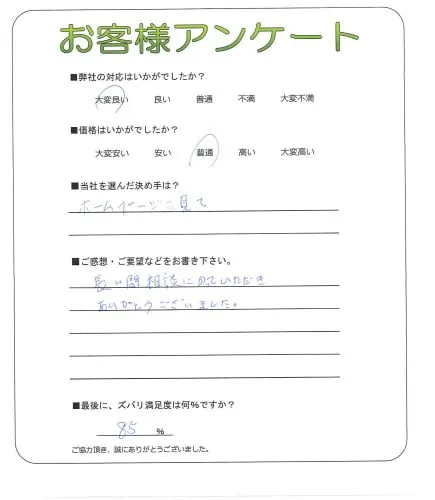 お客様アンケート
■弊社の対応はいかがでしたか?
大変良い 良い 普通 不満 大変不満
■価格はいかがでしたか?
大変安い 安い 普通 高い 大変高い
■当社を選んだ決め手は?
ホームページを見て
■ご感想・ご要望などをお書き下さい。
長い間相談にのっていただき
ありがとうございました。
■最後に、ズバリ満足度は何%ですか?
85 %
ご協力頂き、誠にありがとうございました。